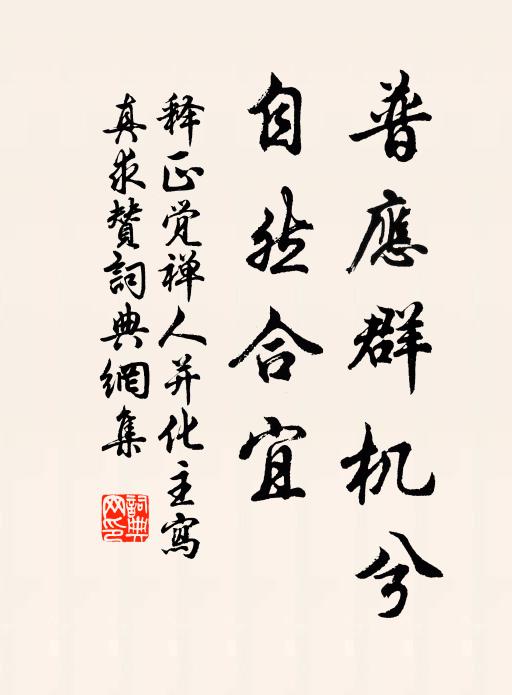 普應群机兮
自然合宜
释正觉禅人并化主寫
真求賛詞典網集
詞典網印